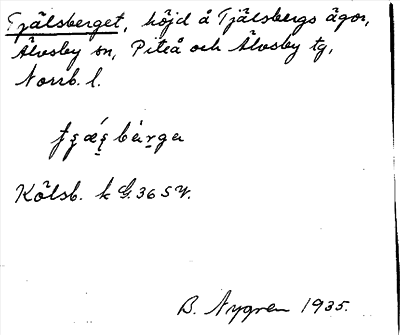 Tjälsberget, höjd å Tjälsbergs ägor,
Älvsby sn, Piteå och Älvsby tg,
Norrb. l.
Kölsb. k G. 365 V.
B. Nygren 1935.